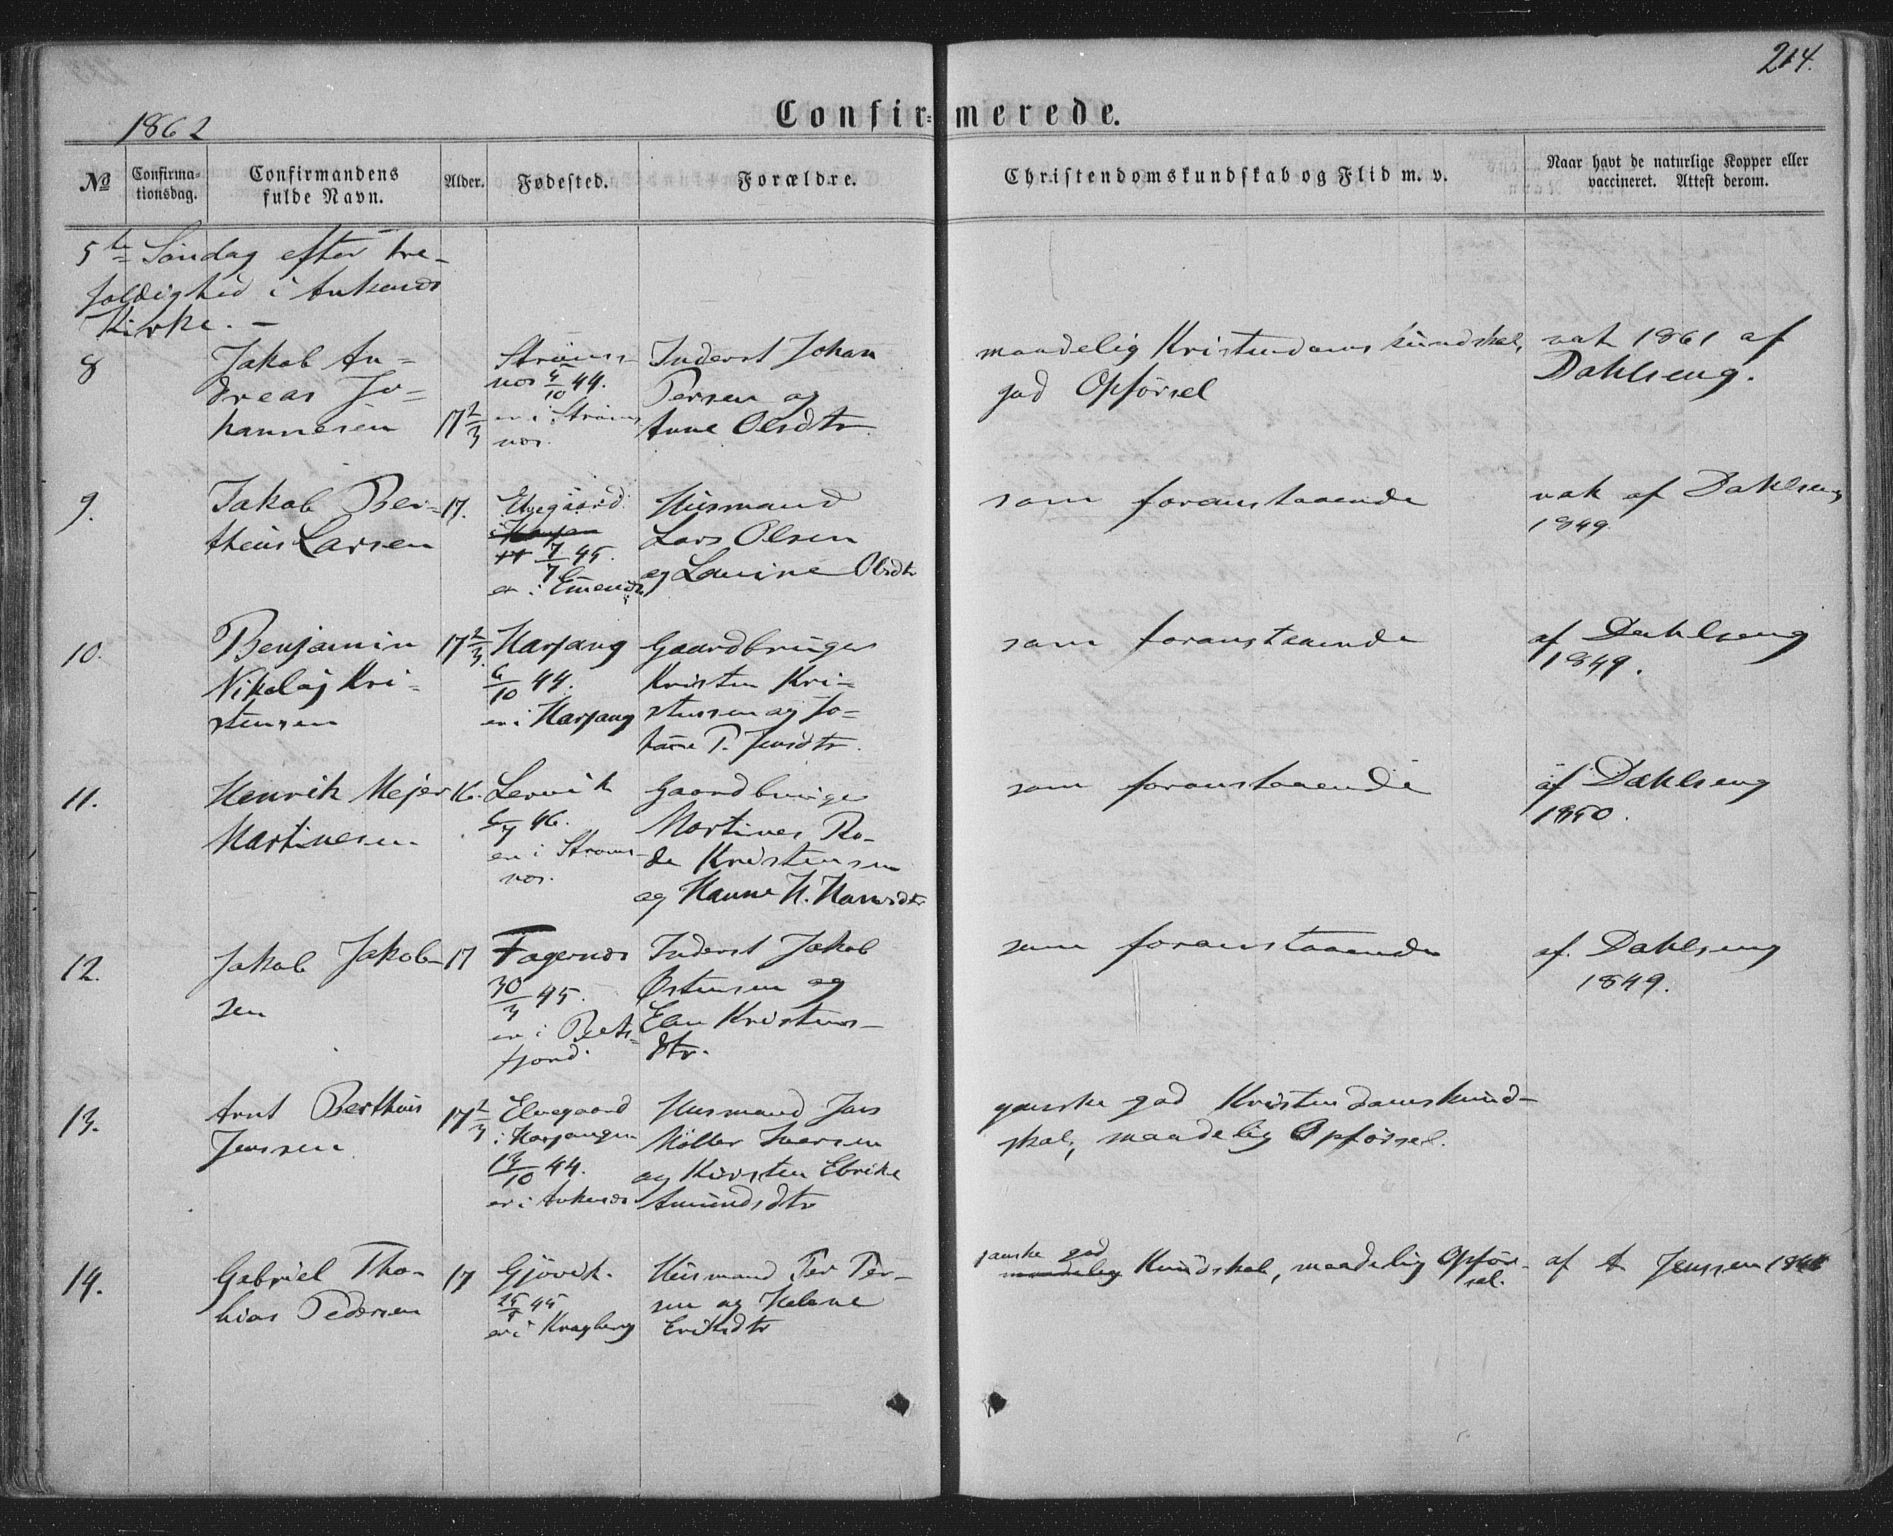 214.
Confir= merede.
1862
No
Confirma-
tionsdag.
Confirmandens
fulde Navn.
Alder.
Fødested.
Forældre.
Christendomskundskab og Flid m. v.
Naar havt de naturlige Kopper eller
vaccineret. Attest derom.
5te Söndag efter Tre-
foldighed i Ankenæs
Kirke. —
8
Jakob An-
dreas Jo-
hannesen
17 2/3
Strøms-
næs 5/10 44.
er i Strøms
næs.
Inderst Johan
Persen og
Anne Olsdtr
maadelig Kristendomskundskab,
god Opförsel
vak 1861 af
Dahlseng.
9.
Jakob Ber-
theus Larsen
17.
Elvegaard
7/7 45.
er i
Huusmand
Lars Olsen
og Lovine Olsdtr
som foranstaaende
vak af Dahlseng
1849
10.
Benjamin
Nikolaj Kri-
stensen
17 2/3
Harjang
6/10 44.
er i Harjang
Gaardbruger
Kristen Kri-
stensen og Jo-
hane P. Jensdtr.
som foranstaaende
af Dahlseng
1849.
11.
Henrik Mejer
Martinesen
16.
Lervik
6/7 46.
er i Strøms-
næs.
Gaardbruger
Martines Ro-
de Kristensen
og Hanne H. Hansdtr
som foranstaaende
af Dahlseng
1850.
12.
Jakob Jakob-
sen
17
Fagernæs
30/3 45.
er i Beis-
fjord.
Inderst Jakob
Østensen og
Elen Kristens-
dtr.
som foranstaaende
af. Dahlseng
1849.
13.
Arnt Berthius
Jenssen
17 2/3
Elvegaard
i Harjangen
13/10 44.
er i Ankenæs
Husmand Jens
Möller Iversen
og Kirsten Ebrike
Amundsdtr
ganske god Kristendomskund-
skab, maadelig Opförsel.
14.
Gabriel Tho-
bias Pedersen
17
Gjövik.
45
er i Kragberg
Huusmand Per Per-
sen og Helene
Eriksdtr
ganske god
maadelig Kundskab, maadelig Opför-
sel.
af A Jenssen